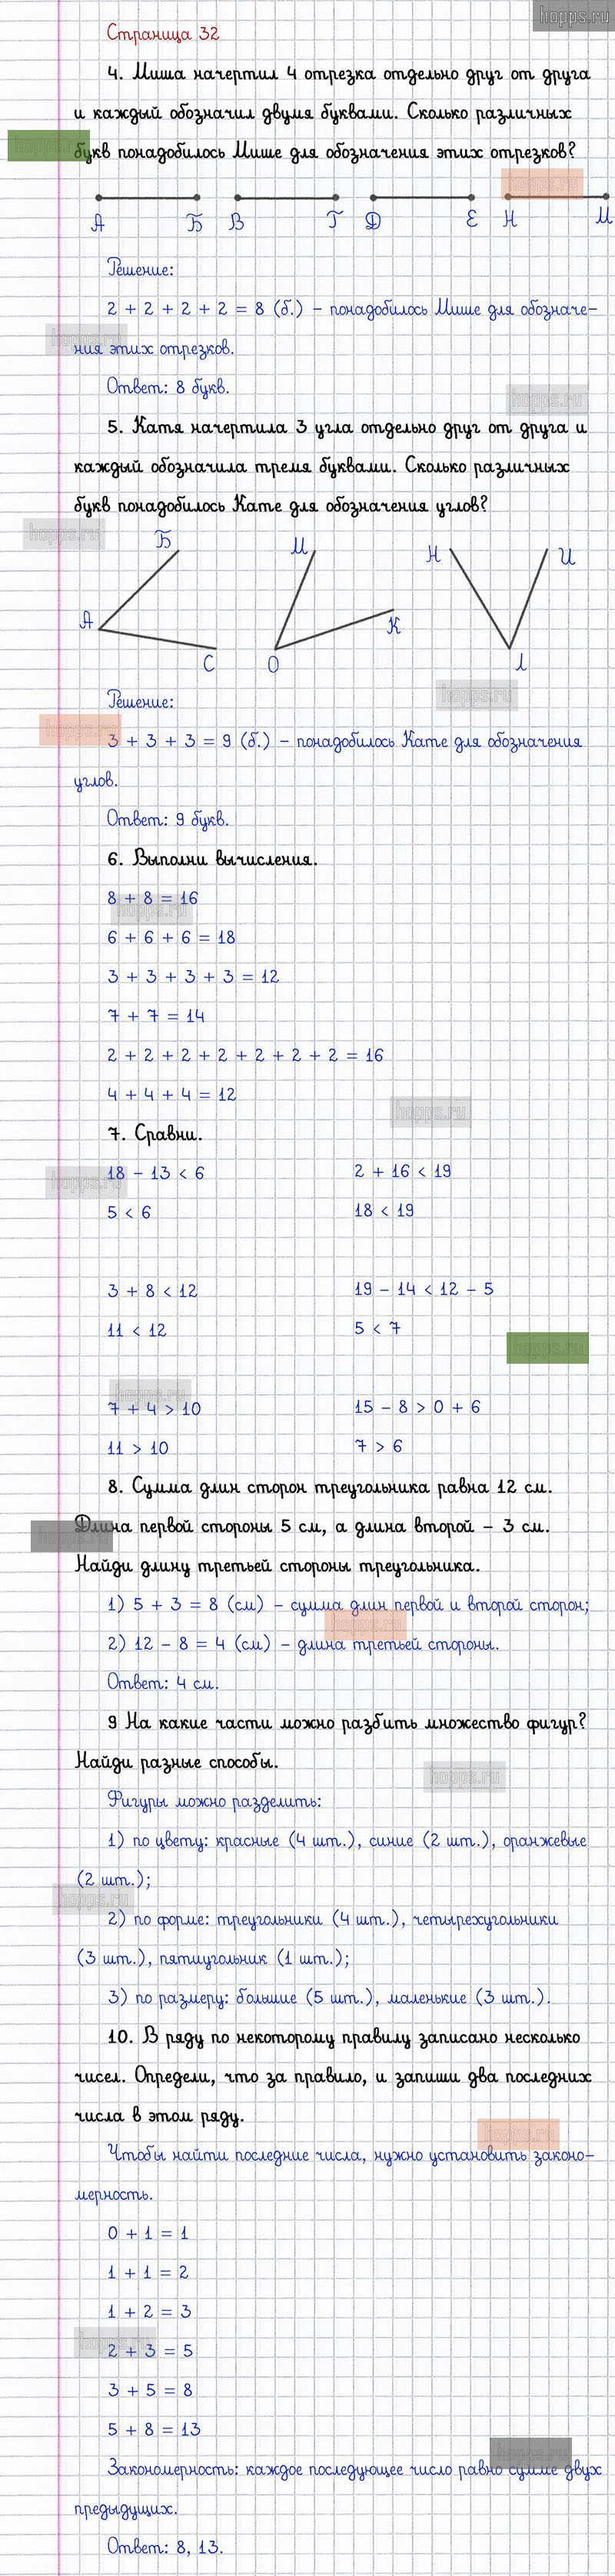 hopps.ru
Страница 32
4. Миша начертил 4 отрезка отдельно друг от друга
и каждый обозначил двумя буквами. Сколько различных
букв понадобилось Мише для обозначения этих отрезков?
А Б В Г Д Е Н М
Решение:
2 + 2 + 2 + 2 = 8 (б.) – понадобилось Мише для обозначе-
ния этих отрезков.
Ответ: 8 букв.
5. Катя начертила 3 угла отдельно друг от друга и
каждый обозначила тремя буквами. Сколько различных
букв понадобилось Кате для обозначения углов?
Б М Н И
А К
С О Л
Решение:
3 + 3 + 3 = 9 (б.) – понадобилось Кате для обозначения
углов.
Ответ: 9 букв.
6. Выполни вычисления.
8 + 8 = 16
6 + 6 + 6 = 18
3 + 3 + 3 + 3 = 12
7 + 7 = 14
2 + 2 + 2 + 2 + 2 + 2 + 2 = 16
4 + 4 + 4 = 12
7. Сравни.
18 – 13 < 6 2 + 16 < 19
5 < 6 18 < 19
3 + 8 < 12 19 – 14 < 12 – 5
11 < 12 5 < 7
7 + 4 > 10 15 – 8 > 0 + 6
11 > 10 7 > 6
8. Сумма длин сторон треугольника равна 12 см.
Длина первой стороны 5 см, а длина второй – 3 см.
Найди длину третьей стороны треугольника.
1) 5 + 3 = 8 (см) – сумма длин первой и второй сторон;
2) 12 – 8 = 4 (см) – длина третьей стороны.
Ответ: 4 см.
9 На какие части можно разбить множество фигур?
Найди разные способы.
Фигуры можно разделить:
1) по цвету: красные (4 шт.), синие (2 шт.), оранжевые
(2 шт.);
2) по форме: треугольники (4 шт.), четырехугольники
(3 шт.), пятиугольник (1 шт.);
3) по размеру: большие (5 шт.), маленькие (3 шт.).
10. В ряду по некоторому правилу записано несколько
чисел. Определи, что за правило, и запиши два последних
числа в этом ряду.
Чтобы найти последние числа, нужно установить законо-
мерность.
0 + 1 = 1
1 + 1 = 2
1 + 2 = 3
2 + 3 = 5
3 + 5 = 8
5 + 8 = 13
Закономерность: каждое последующее число равно сумме двух
предыдущих.
Ответ: 8, 13.